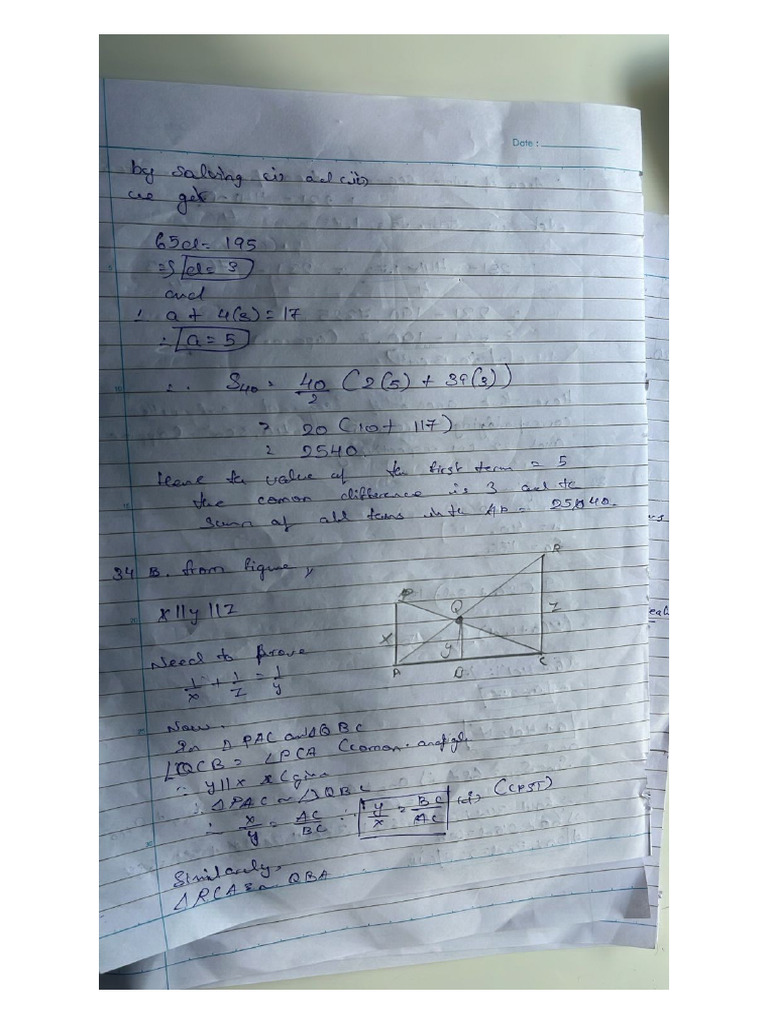 Date :
by solving (i) and (ii)
we get
65d = 195
=> d = 3
and
∴ a + 4(3) = 17
∴ a = 5
∴ S40 = 40/2 (2(5) + 39(3))
= 20 (10 + 117)
= 2540
Hence the value of the first term = 5
the comon difference is 3 and the
sum of all tems in the AP = 2540.
34 B. from figure,
x || y || z
Need to prove
1/x + 1/z = 1/y
P
Q
R
x
y
z
A
B
C
Now,
In △ PAC and △ QBC
∠QCB = ∠PCA (comon
∵ y || x (given
∴ △PAC ~ △QBC
∴ x/y = AC/BC ∴ y/x = BC/AC (i) (CPST)
Similarly,
△RCA ~ QBA